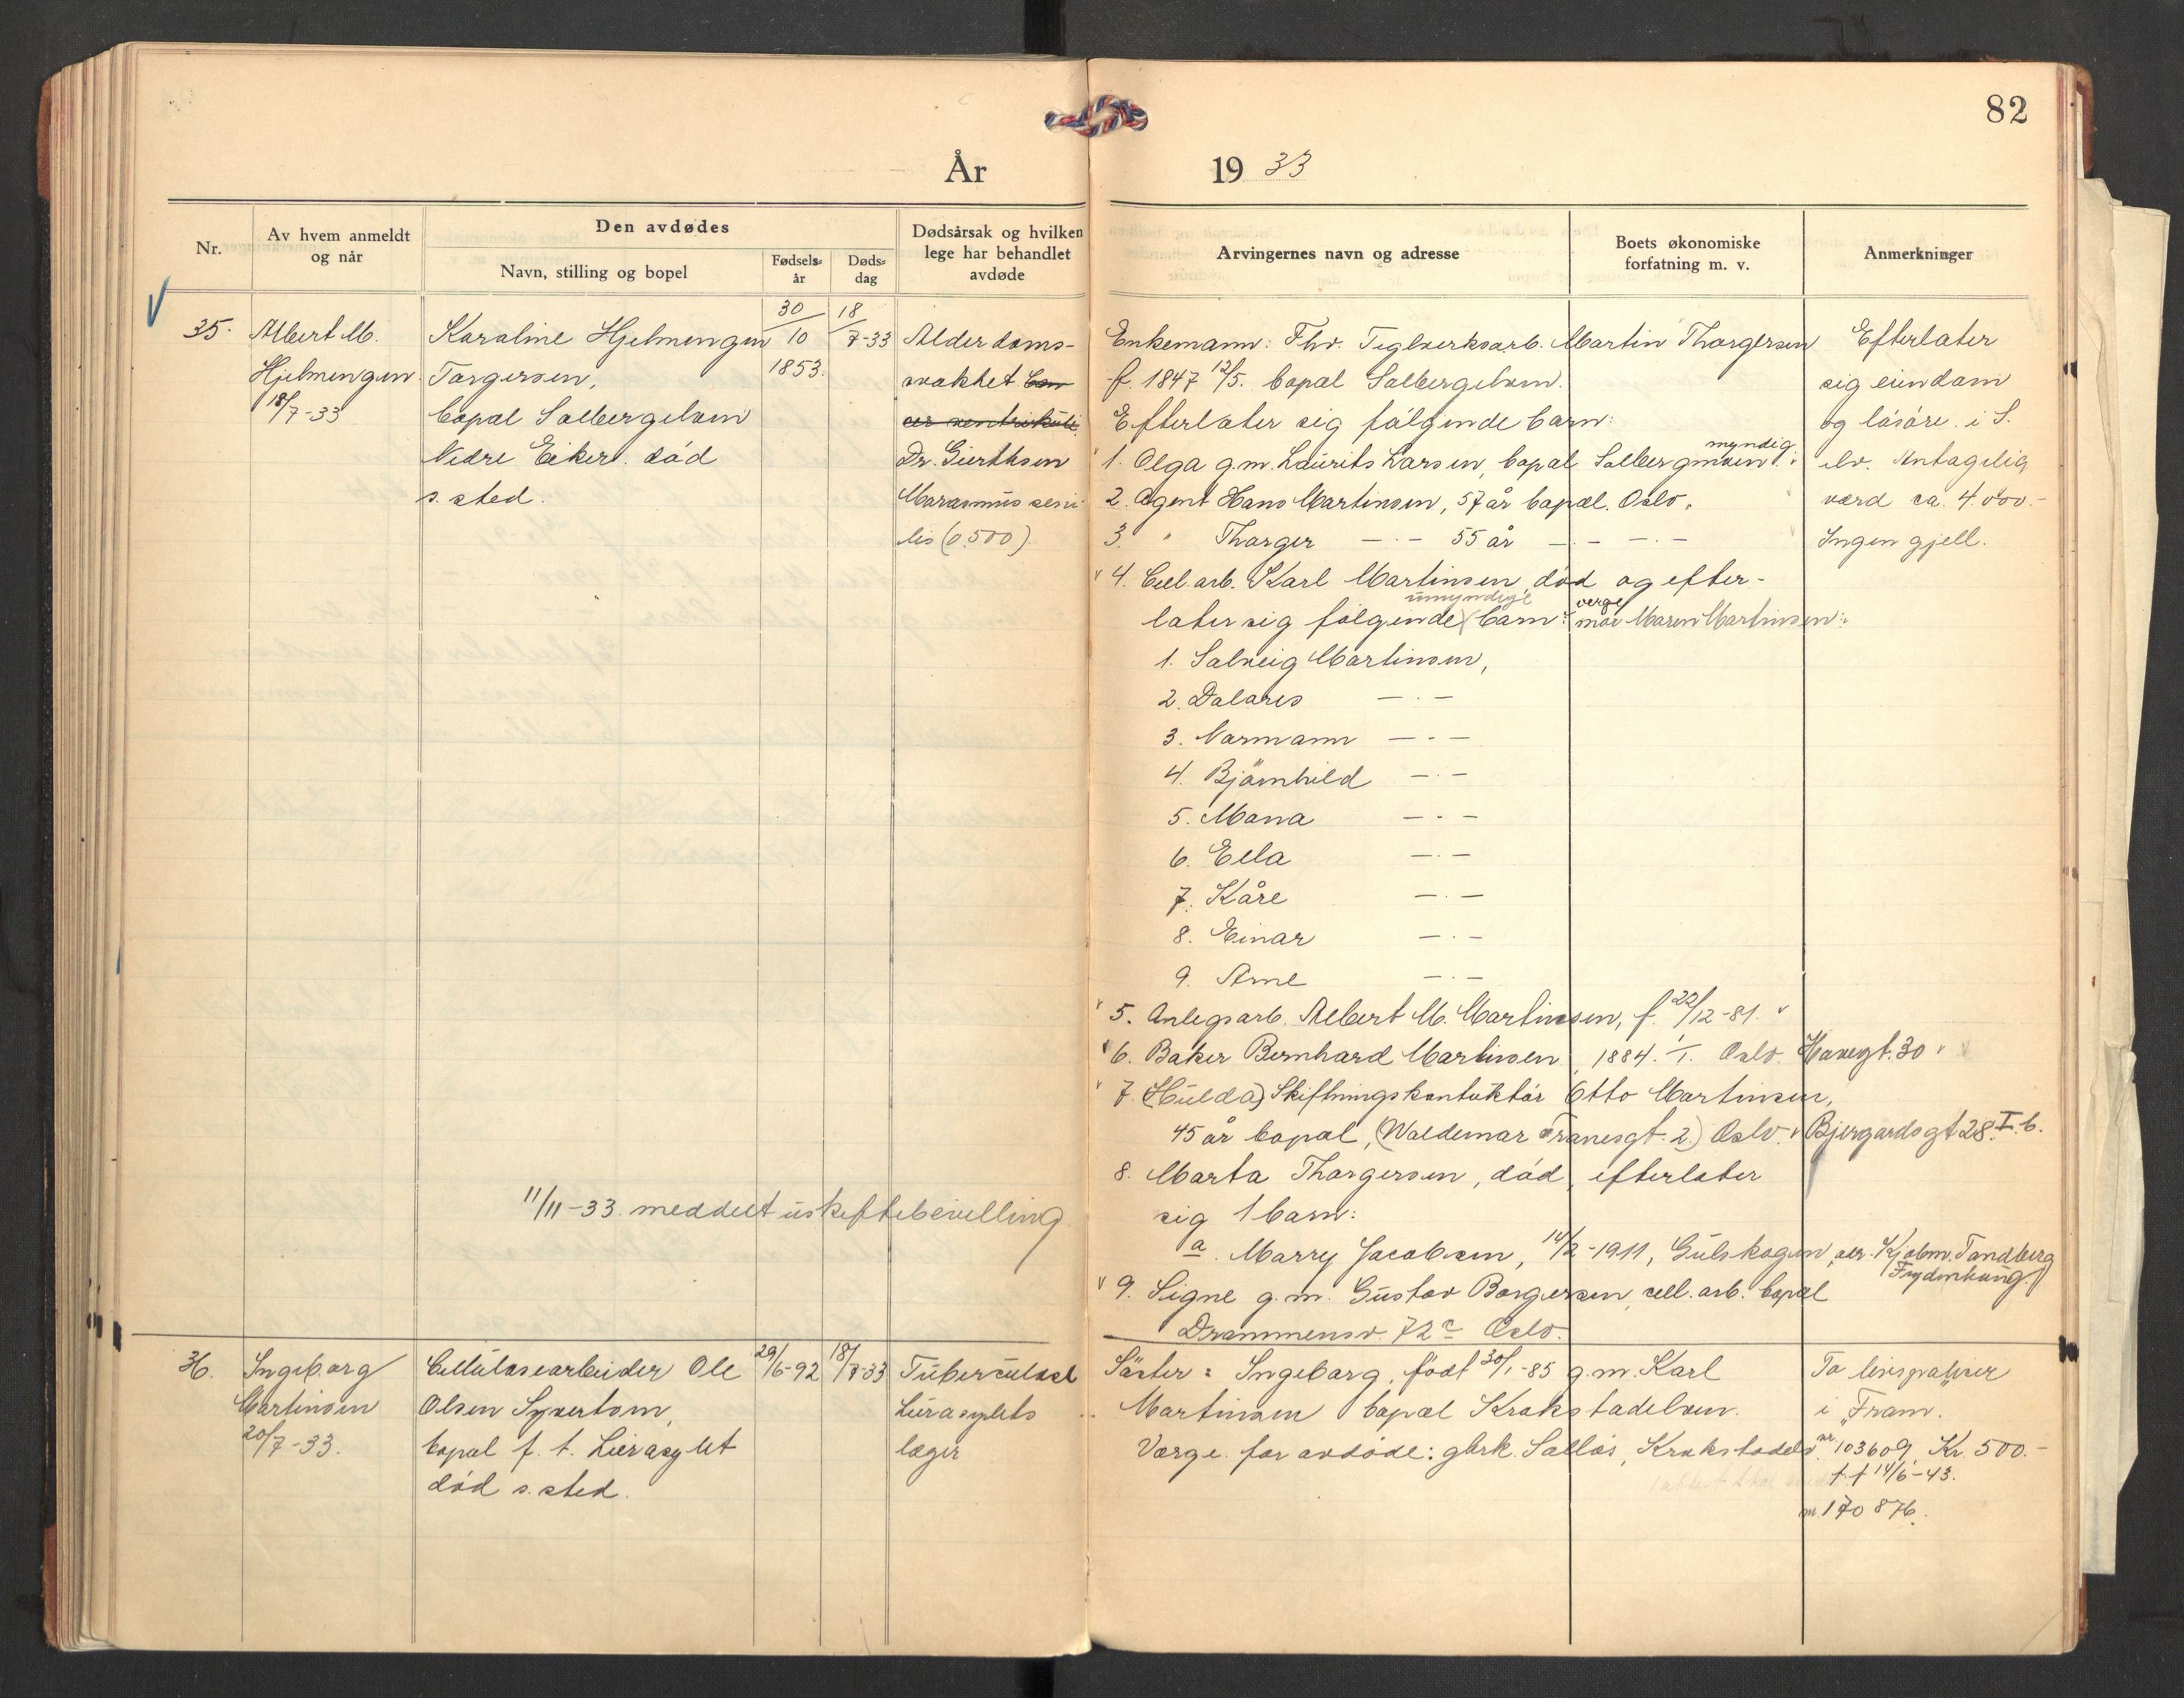 82
År 1933
Nr.
Av hvem anmeldt og når
Den avdødes
Navn, stilling og bopel
Fødsels- år
Døds- dag
Dødsårsak og hvilken lege har behandlet avdøde
Arvingernes navn og adresse
Boets økonomiske forfatning m. v.
Anmerkninger
35.
Albert M.
Hjelmengen
18/7-33
Karoline Hjelmengen
Torgersen,
bopæl Solbergelven
Nedre Eiker. død
s. sted.
30/10
1853.
18/7-33
Alderdoms-
svakhet Can
cer ventrikuli
Dr. Gierthsen
Marasmus seni-
lis (0.500)
11/11-33. meddelt uskiftebevilling
Enkemann: Fhv. Teglverksarb. Martin Thorgersen
f. 1847 12/5. bopæl Solbergelven.
Efterlater sig følgende barn:
1. Olga g.m. Laurits Larsen, bopæl Solbergmoen. myndig
2. Agent Hans Martinsen, 57 år bopæl. Oslo.
3. " Thorger —·— 55 år —·— —·—
4. Cell. arb. Karl Martinsen, død og efter-
later sig følgende umyndige barn: verge mor Maren Martinsen:
1. Solveig Martinsen,
2. Dolores —·—
3. Normann —·—
4. Bjørnhild —·—
5. Mona —·—
6. Ella —·—
7. Kåre —·—
8. Einar —·—
9. Arne —·—
5. Anlegsarb. Albert M. Martinsen, f. 22/12-81.
6. Baker Bernhard Martinsen, 1884. 1/1. Oslo. Havegt. 30
7. (Hulda) Skiftningskonduktør Otto Martinsen,
45 år bopæl, (Waldemar Tranesgt. 2.) Oslo. Bjergårdsgt 28 I. b.
8. Marta Thorgersen, død, efterlater
sig 1 barn:
a. Marry Jacobsen, 14/2-1911, Gulskogen, adr. Kjøbm. Tandberg
Frydenhaug.
9. Signe g.m. Gustav Borgersen, cell. arb. bopæl
Drammensv. 72c Oslo.
Efterlater
sig eiendom
og løsøre. i S.
elv. Antagelig
verd ca. 4.000.-
Ingen gjell.
36.
Ingeborg
Martinsen
20/7-33.
Cellulosearbeider Ole
Olsen Syvertsen,
bopæl f. t. Lierasylet
død s. sted.
29/6-92
18/7-33
Tuberculose
Lierasylets
læger
Søster: Ingeborg, født 30/1-85 g.m. Karl
Martinsen bopæl Krokstadelven.
Værge for avdøde: gbrk. Solløs, Krokstadelv.
To livspoliser
i "Fram".
nr. 103609, Kr. 500.-
f.f 14/6-43.
nr. 170876.